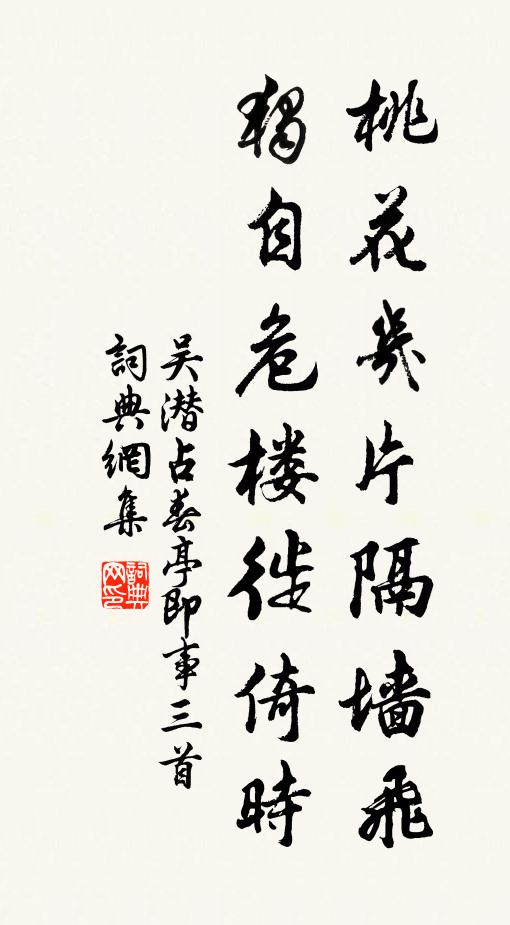 桃花幾片隔墙飛
獨自危楼徙倚時
吴潜占春亭即事三首
詞典網集
詞典网印